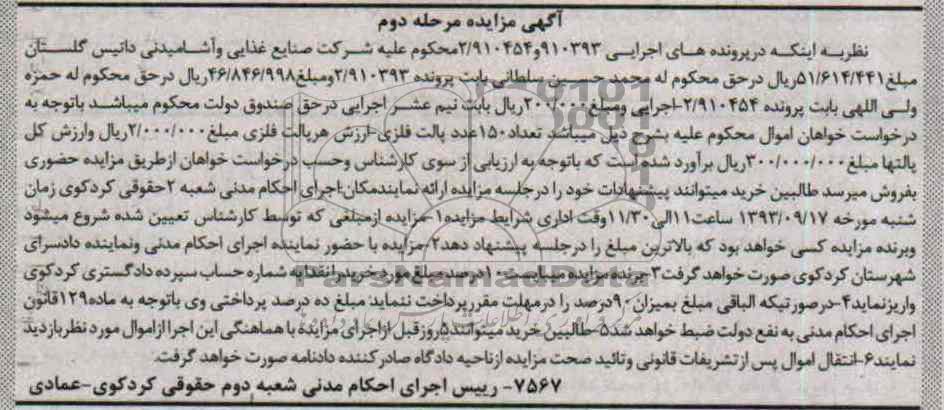 آگهی مزایده مرحله دوم
نظربه اینکه درپرونده های اجرایی ۹۱۰۳۹۳و۲/۹۱۰۴۵۴محکوم علیه شرکت صنایع غذایی وآشامیدنی داتیس گلستان
مبلغ۵۱/۶۱۴/۴۴۱ریال درحق محکوم له محمدحسین سلطانی بابت پرونده ۲/۹۱۰۳۹۳ومبلغ۴۶/۸۴۶/۹۹۸ریال درحق محکوم له حمزه
ولی اللهی بابت پرونده ۲/۹۱۰۴۵۴-اجرایی ومبلغ۲۰۰/۰۰۰ریال بابت نیم عشر اجرایی درحق صندوق دولت محکوم میباشد باتوجه به
درخواست خواهان اموال محکوم علیه بشرح ذیل میباشد تعداد۱۵۰عدد پالت فلزی-ارزش هرپالت فلزی مبلغ۲/۰۰۰/۰۰۰ریال وارزش کل
پالتها مبلغ۳۰۰/۰۰۰/۰۰۰ریال برآورد شده است که باتوجه به ارزیابی از سوی کارشناس وحسب درخواست خواهان ازطریق مزایده حضوری
بفروش میرسد طالبین خرید میتوانند پیشنهادات خود را درجلسه مزایده ارائه نمایندمکان:اجرای احکام مدنی شعبه ۲حقوقی کردکوی زمان
شنبه مورخه ۱۳۹۳/۰۹/۱۷ ساعت۱۱الی۱۱/۳۰وقت اداری شرایط مزایده۱-مزایده ازمبلغی که توسط کارشناس تعیین شده شروع میشود
وبرنده مزایده کسی خواهد بود که بالاترین مبلغ را درجلسه پیشنهاد دهد۲-مزایده با حضور نماینده اجرای احکام مدنی ونماینده دادسرای
شهرستان کردکوی صورت خواهد گرفت۳-برنده مزایده میبایست۱۰درصدمبلغ مورد خریدرانقدابه شماره حساب سپرده دادگستری کردکوی
واریزنماید۴-درصورتیکه الباقی مبلغ بمیزان۹۰درصد را درمهلت مقررپرداخت ننماید مبلغ ده درصد پرداختی وی باتوجه به ماده۱۲۹قانون
اجرای احکام مدنی به نفع دولت ضبط خواهد شد۵-طالبین خرید میتوانند۵روزقبل ازاجرای مزایده با هماهنگی این اجرا ازاموال مورد نظربازدید
نمایند۶-انتقال اموال پس ازتشریفات قانونی وتائید صحت مزایده ازناحیه دادگاه صادرکننده دادنامه صورت خواهد گرفت.
۷۵۶۷- رییس اجرای احکام مدنی شعبه دوم حقوقی کردکوی-عمادی
ParsNamadData